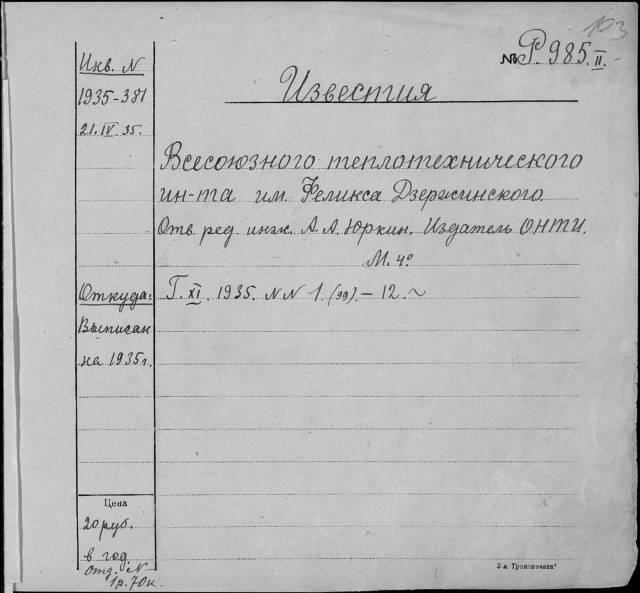 103
№ Р. 985. II.
Инв. N
1935-381
21. IV. 35.
Известия
Всесоюзного теплотехнического
ин-та им. Феликса Дзержинского.
Отв. ред. инж. А. А. Юркин. Издатель ОНТИ.
М. 4°
Откуда:
Выписан
на 1935 г.
Г. XI. 1935. N N 1. (99). – 12. ~
Цена
20 руб.
в год.
Отд. N
1 р. 70 к.
3-я Транспечати